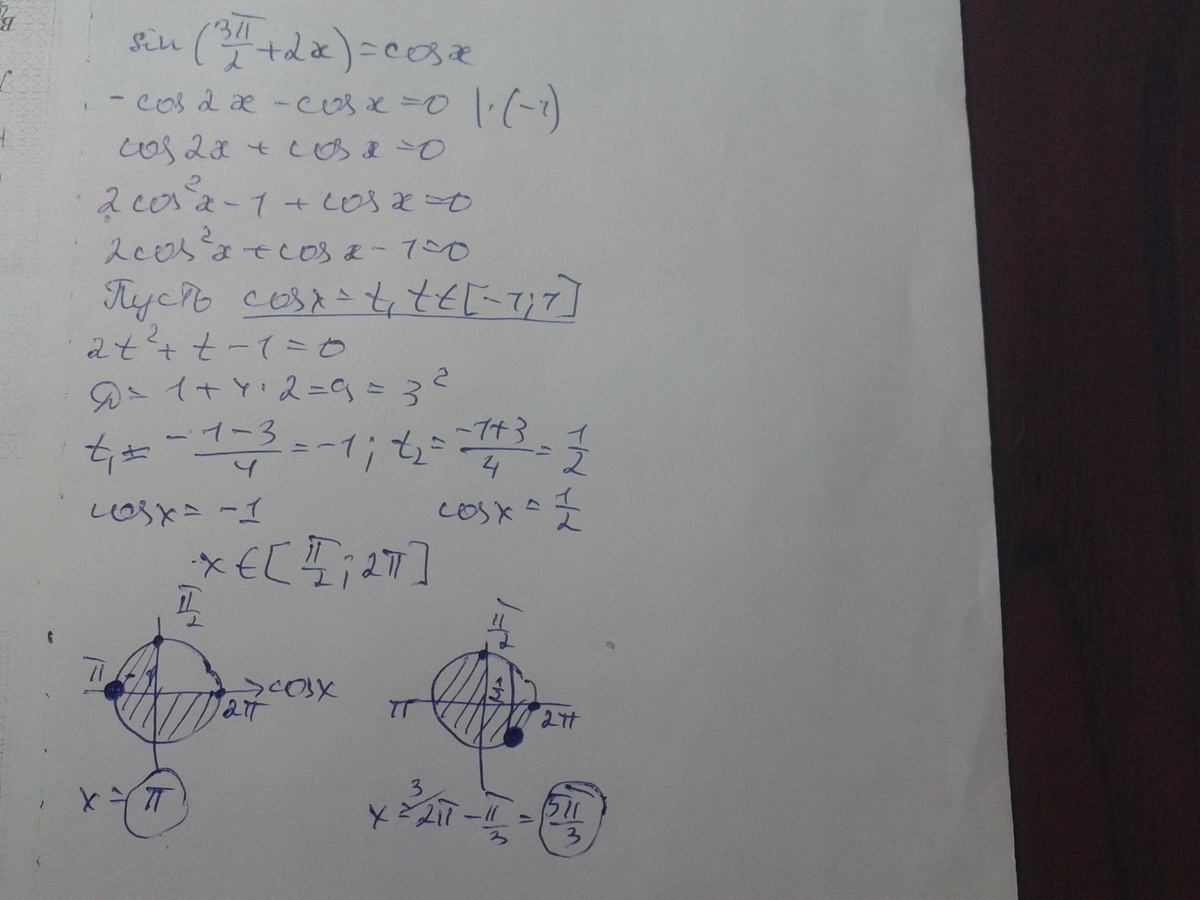 sin(3π/2+2x)=cosx
-cos2x-cosx=0 |·(-1)
cos2x+cosx=0
2cos²x-1+cosx=0
2cos²x+cosx-1=0
Пусть cosx=t, t∈[-1;1]
2t²+t-1=0
D=1+4·2=9=3²
t₁=-1-3/4=-1; t₂=-1+3/4=1/2
cosx=-1 cosx=1/2
x∈[π/2;2π]
π/2 π/2
π -1 cosx 1/2
2π π 2π
x=π x=2π³-π/3=5π/3